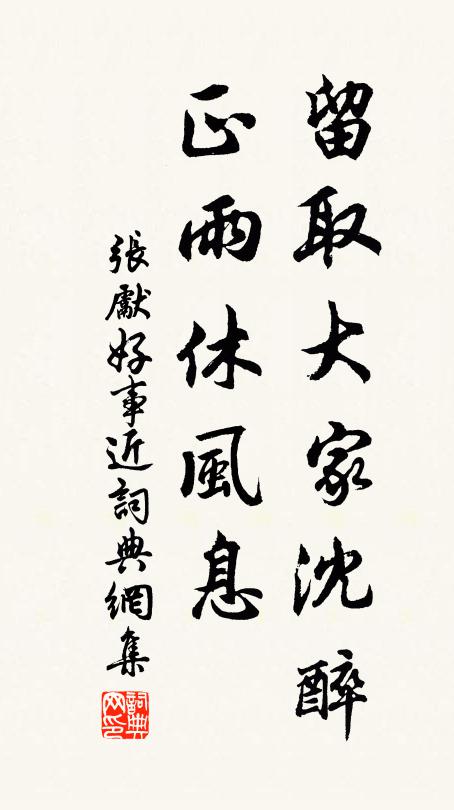 留取大家沈醉
正雨休風息
張獻好事近詞典網集
詞典網印